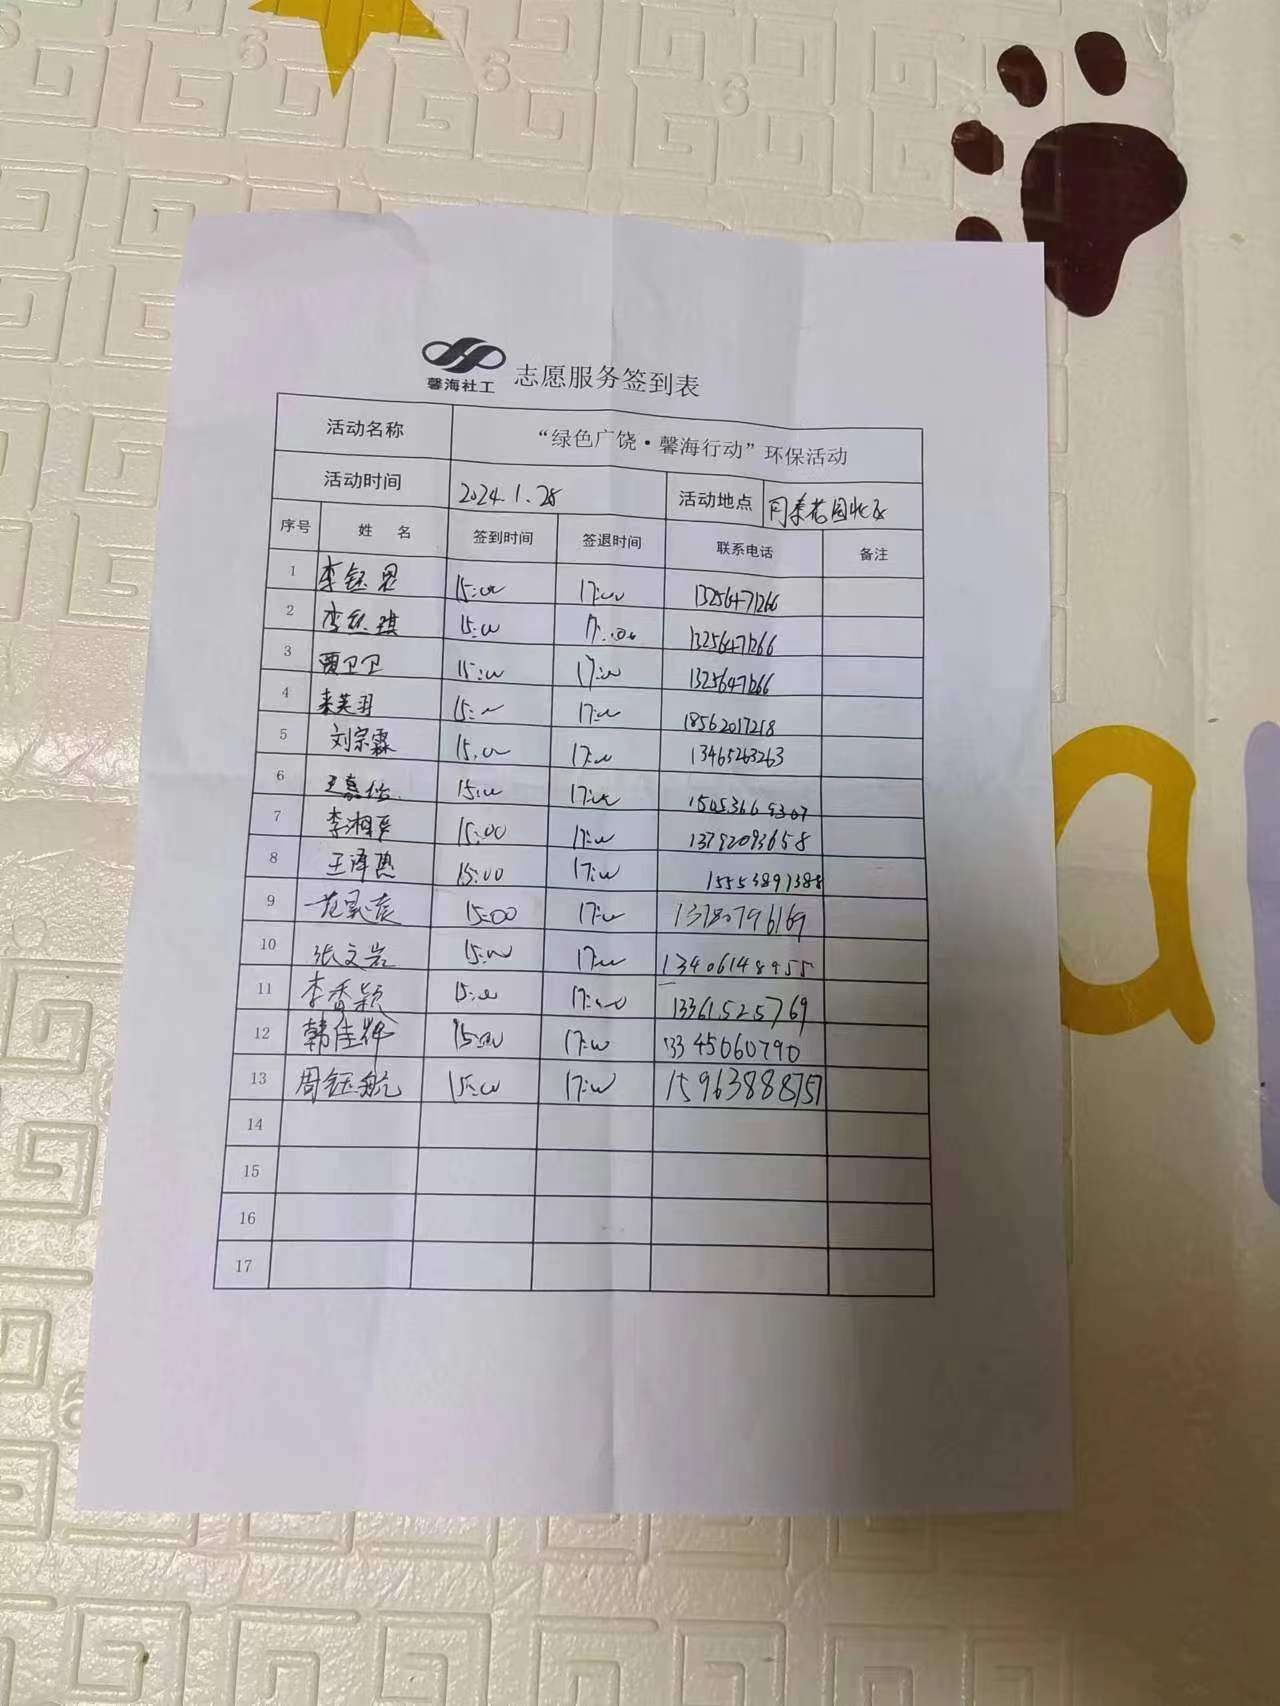 馨海社工 志愿服务签到表
活动名称 “绿色广饶·馨海行动”环保活动
活动时间 2024.1.28 活动地点 花园北区
序号 姓 名 签到时间 签退时间 联系电话 备注
1 李钰 15:00 17:00 13256471266
2 李 琪 15:00 17:00 13256471266
3 贾卫卫 15:00 17:00 13256471266
4 15:00 17:00 18562017218
5 刘宗霖 15:00 17:00 13465263263
6 王嘉 15:00 17:00
7 李湘 15:00 17:00 13792093658
8 王泽 15:00 17:00 15553891388
9 范 15:00 17:00 13780796169
10 张文岩 15:00 17:00 13406148955
11 李香颖 15:00 17:00 13361525769
12 韩佳 15:00 17:00 13345060790
13 周钰航 15:00 17:00 15963888757
14
15
16
17